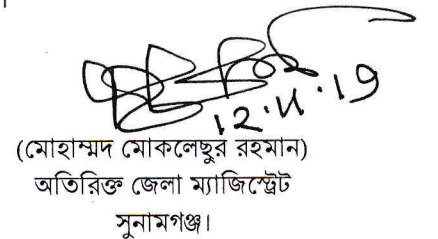 ১২.১১.১৭
(মোহাম্মদ মোকলেছুর রহমান)
অতিরিক্ত জেলা ম্যাজিস্ট্রেট
সুনামগঞ্জ।